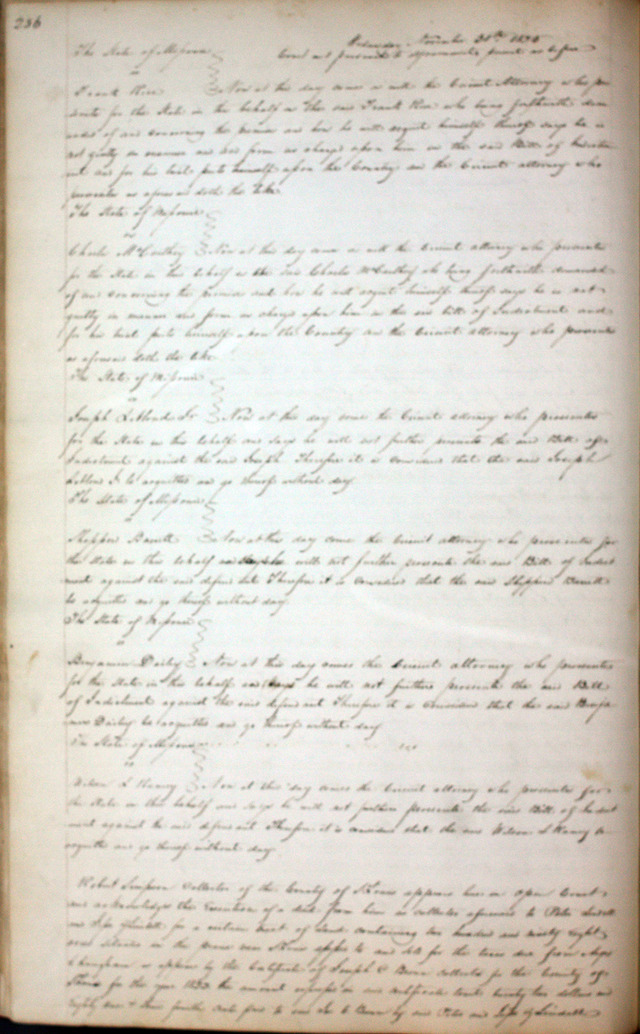 236
Wednesday November 30th 183
Court met pursuant to adjournment present as before
The State of Missouri
vs
Frank Rice Now at this day come as well the Circuit Attorney who pro
secute for the State in this behalf as the said Frank Rice who being forthwith dem
anded of and concerning the premises and how he will acquit himself thereof says he is
not guilty in manner and form as charged upon him in the said Bill of Indictm
ent and for his trial puts himself upon the Country and the Circuit attorney who
prosecutes as aforesaid doth the like
The State of Missouri
vs
Charles McCauthey Now at this day come as well the Circuit attorney who prosecutes
for the State in this behalf as the said Charles McCauthey who being forthwith demanded
of and concerning the premises and how he will acquit himself thereof says he is not
guilty in manner and form as charged upon him in the said bill of Indictment and
for his trial puts himself upon the Country and the Circuit attorney who prosecutes
as aforesaid doth the like
The State of Missouri
vs
Joseph Jr Now at this day comes the Circuit attorney who prosecutes
for the State in this behalf and says he will not further prosecute the said Bill of
Indictment against the said Joseph Therefore it is considered that the said Joseph
be acquitted and go thereof without day
The State of Missouri
vs
Barrett Now at this day comes the Circuit attorney who prosecutes for
the State in this behalf and will not further prosecute the said Bill of Indict
ment against the said defendant Therefore it is considered that the said Barrett
be acquitted and go thereof without day
The State of Missouri
vs
Benjamin Dailey Now at this day comes the Circuit attorney who prosecutes
for the State in this behalf and says he will not further prosecute the said Bill
of Indictment against the said defendant Therefore it is considered that the said Benja
min Dailey be acquitted and go thereof without day
The State of Missouri
vs
Wilson L Now at this day comes the Circuit attorney who prosecutes for
the State in this behalf and says he will not further prosecute the said Bill of Indict
ment against the said defendant Therefore it is considered that the said Wilson L be
acquitted and go thereof without day
Robert Simpson Collector of the County of St Louis appears here in open Court
and acknowledges the Execution of a deed from him as collector aforesaid to Peter Lindell
and Jesse G Lindell for a certain tract of land containing two hundred and ninety eight
acres situate in the and sold for the taxes due from
as appears by the Certificate of Joseph C Brown collector for the County of
St Louis for the year 1833 the amount expressed in said certificate twenty two dollars and
eighty cents paid to said Jos C Brown by said Peter and Jesse G Lindell